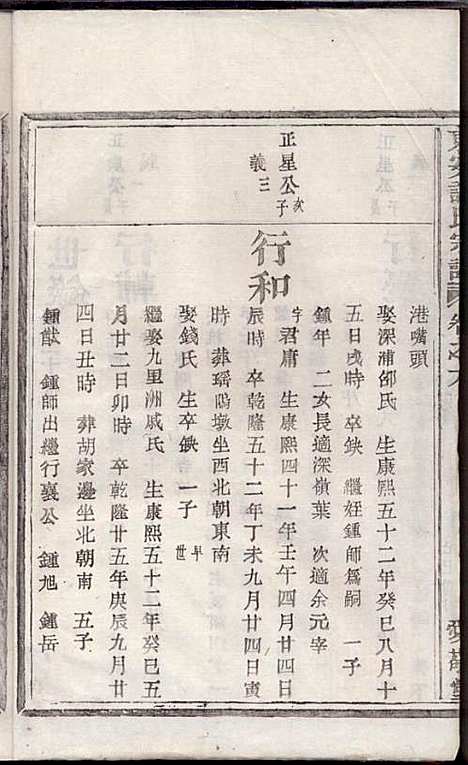 宗譜 卷之六
港嘴頭
娶深浦邵氏 生康熙五十二年癸巳八月十
五日戌時 卒缺 繼姪鍾師爲嗣 一子
鍾年 二女長適深嶺葉 次適余元宰
正星公次子
義三
行和
字君庸 生康熙四十一年壬午四月廿四日
辰時 卒乾隆五十二年丁未九月廿四日寅
時 葬瑶鳴墩坐西北朝東南
娶錢氏 生卒缺 一子早世
繼娶九里洲戚氏 生康熙五十二年癸巳五
月廿二日卯時 卒乾隆廿五年庚辰九月廿
四日丑時 葬胡家邊坐北朝南 五子
鍾猷 鍾師出繼行襄公 鍾旭 鍾岳
愛敬堂